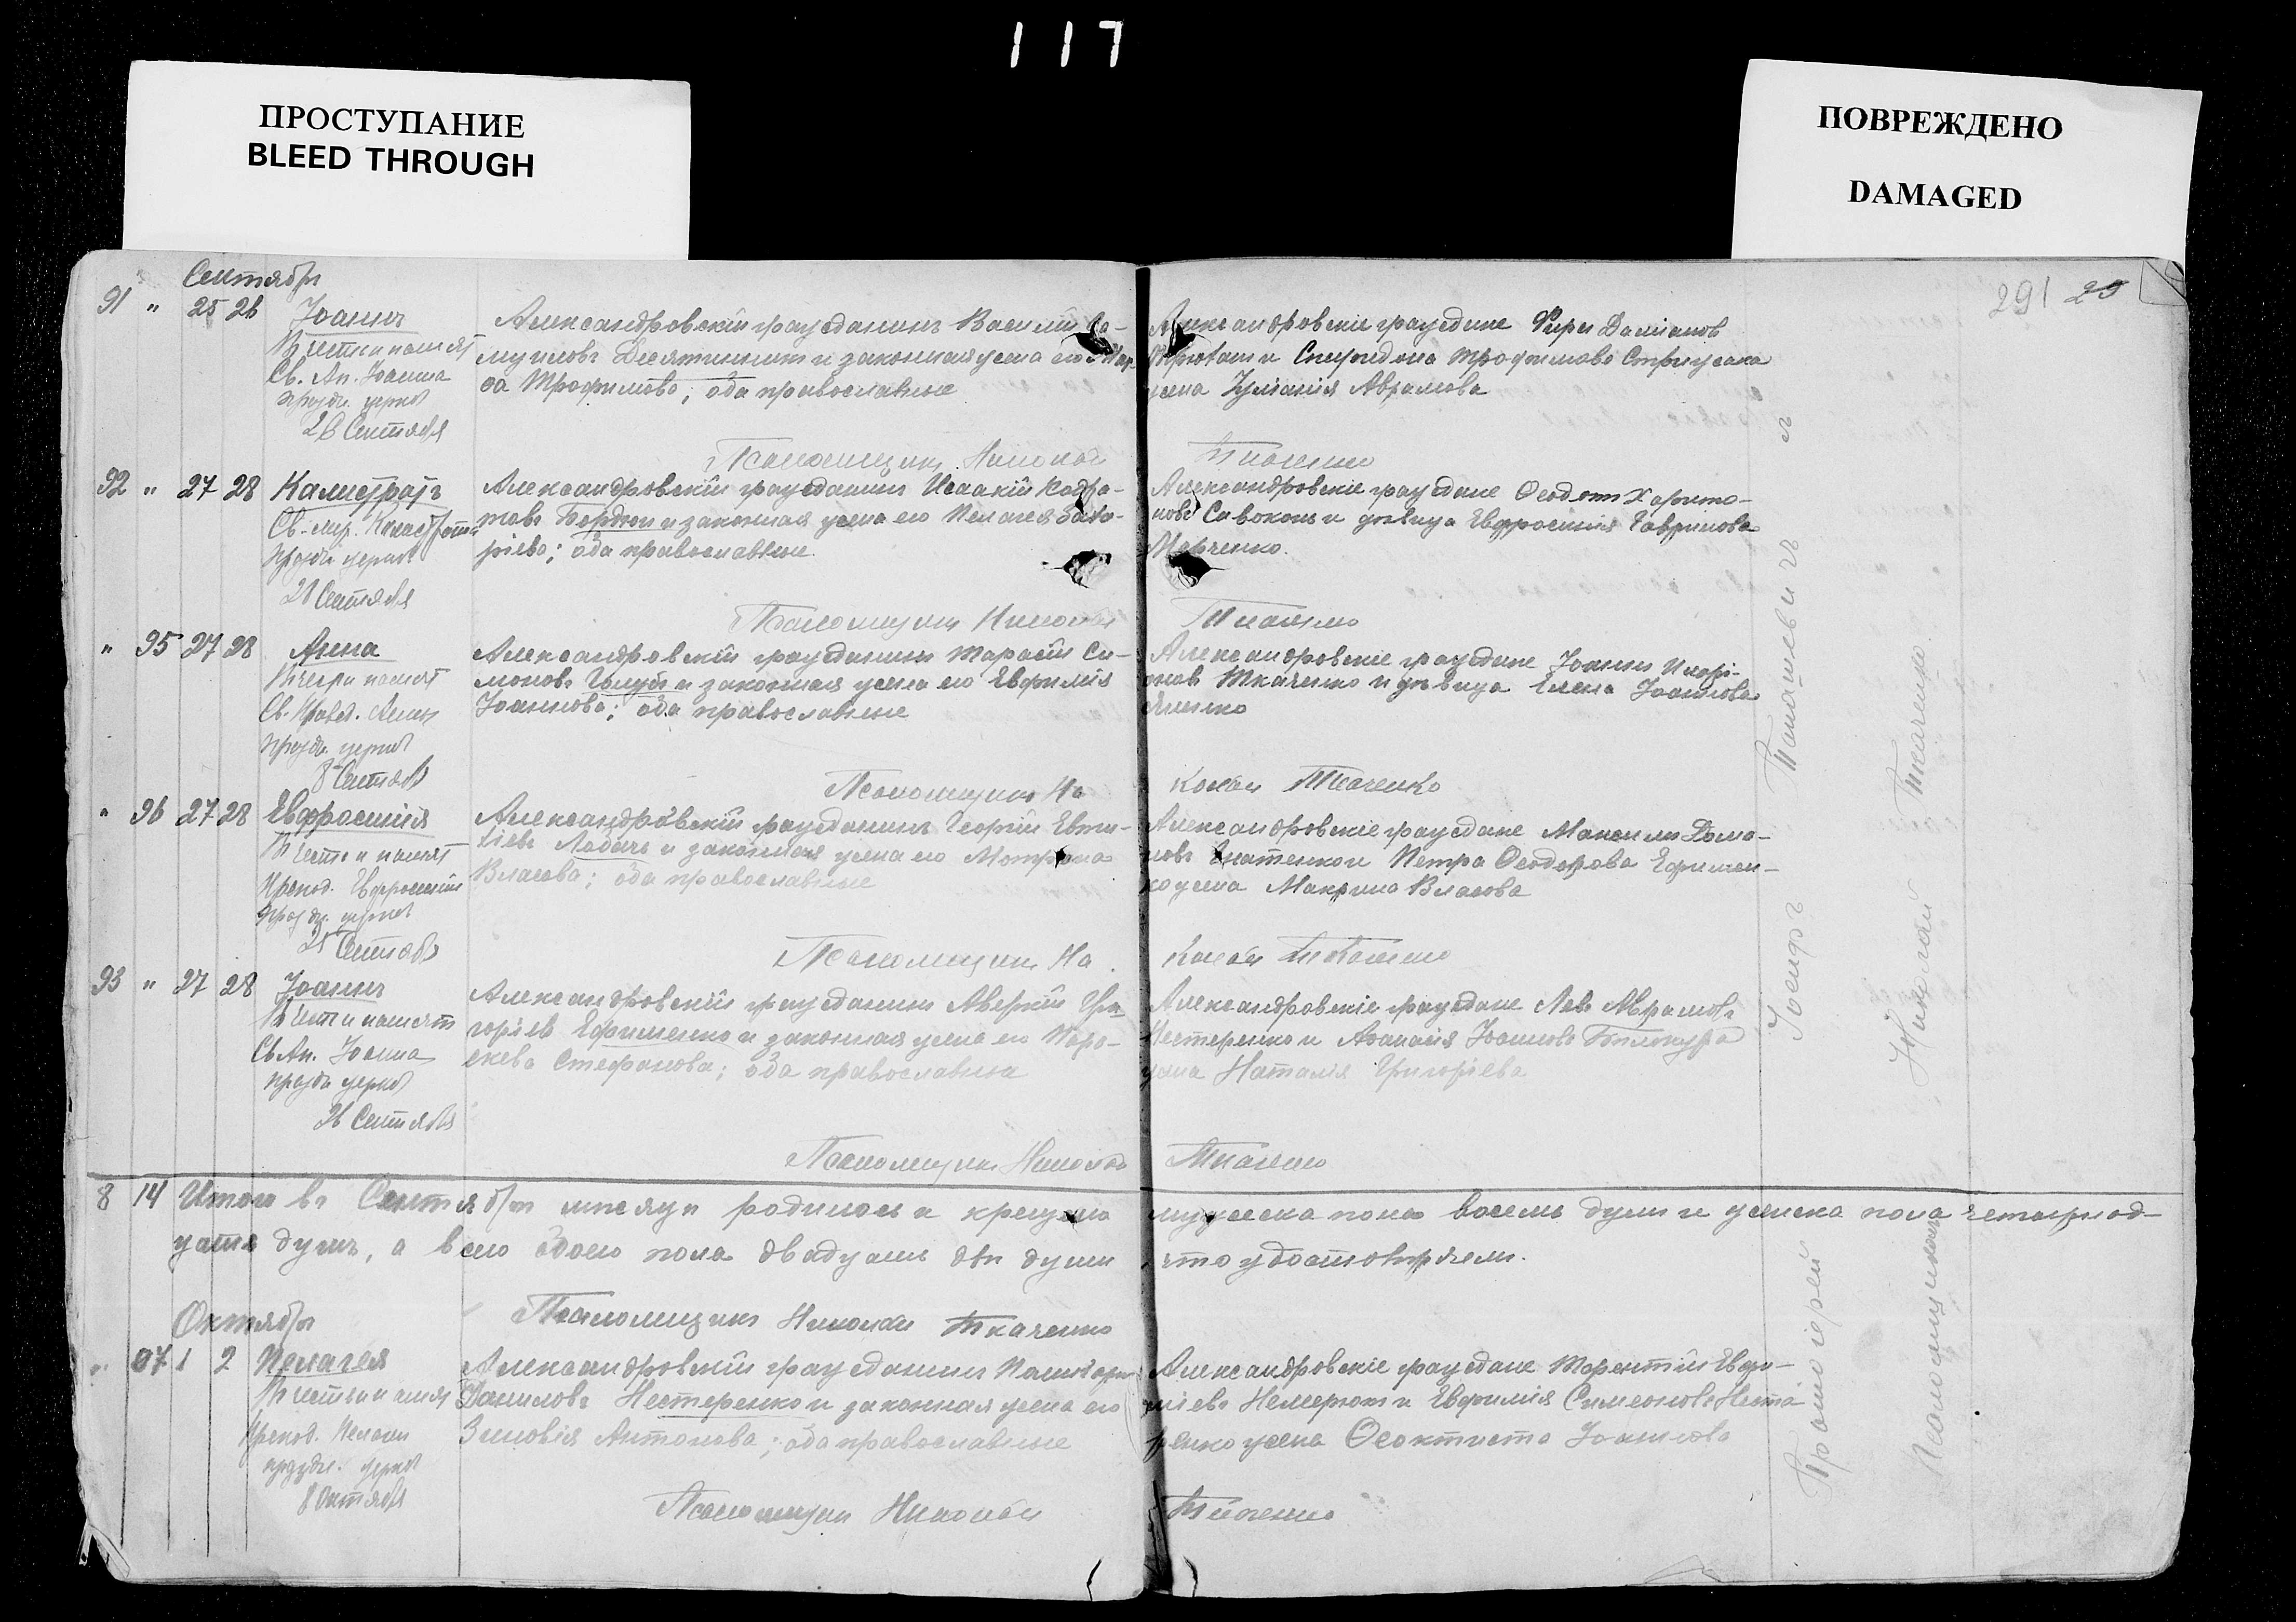 117
ПРОСТУПАНИЕ
BLEED THROUGH
ПОВРЕЖДЕНО
DAMAGED
291 29
Сентябрь
91 " 25 26 Іоаннъ
Въ честь и памят
Св. Ап. Іоанна
празд. церков
26 Сентября
Александровскій гражданинъ Василій
муиловъ Десятинникъ и законная жена его Мар
 Трофимова; оба православные
Александровскіе граждане Даміановъ
 и Спиридона Трофимова Стрижака
жена Іуліанія Аврамова
Псаломщикъ Николай Ткаченко
92 " 27 28 Калистратъ
Св. муч. Калистрата
празд. церков
28 Сентября
Александровскій гражданинъ Исаакій Кодра-
товъ Бордюгъ и законная жена его Пелагея Заха-
ріева; оба православные.
Александровскіе граждане Ѳеодотъ Харито-
новъ Сивоконь и дѣвица Евфросинія Гаврилова
Марченко.
Псаломщикъ Николай Ткаченко
" 95 27 28 Анна
Въ честь и памят
Св. Правед. Анны
празд. церков
8 Сентяб
Александровскій гражданинъ Тарасій Си-
моновъ Голубъ и законная жена его Евфимія
Іоаннова; оба православные
Александровскіе граждане Іоаннъ Иларі-
оновъ Ткаченко и дѣвица Елена Іоаннова
Псаломщикъ Николай Ткаченко
" 96 27 28 Евфросинія
Въ честь и памят
Препод. Евфросиніи
празд. церков
25 Сентяб
Александровскій гражданинъ Георгій Евти-
хіевъ Лобачъ и законная жена его Матрона
Власова; оба православные
Александровскіе граждане Максимъ Дома-
новъ Игнатенко и Петра Ѳеодорова Ефимен-
ко жена Макрина Власова
Псаломщикъ Николай Ткаченко
93 " 27 28 Іоаннъ
Въ честь и памят
Св. Ап. Іоанна
празд. церков
26 Сентября
Александровскій гражданинъ Аверкій Гри-
горіевъ Ефименко и законная жена его Пара-
скева Стефанова; оба православные
Александровскіе граждане Левъ Аврамовъ
Нестеренко и Аѳанасія Іоаннова Билокура
жена Наталія Григоріева
Псаломщикъ Николай Ткаченко
8 14 Итого въ Сентябрѣ мѣсяцѣ родилось и крещено мужеска пола восемь душъ и женска пола четырнад-
цать душъ, а всего обоего пола двадцать двѣ души что удостовѣряемъ.
Псаломщикъ Николай Ткаченко
Октябрь
" 97 1 2 Пелагея
Въ честь и памят
Препод. Пелагіи
празд. церков
8 Октября
Александровскій гражданинъ Поликарпъ
Даниловъ Нестеренко и законная жена его
Зиновія Антонова; оба православные
Александровскіе граждане Терентій Евфи-
міевъ Немерюкъ и Евфимія Симеонова Несте-
ренко жена Ѳеоктиста Іоаннова
Псаломщикъ Николай Ткаченко
Протоіерей Іосифъ
Псаломщикъ Николай Ткаченко